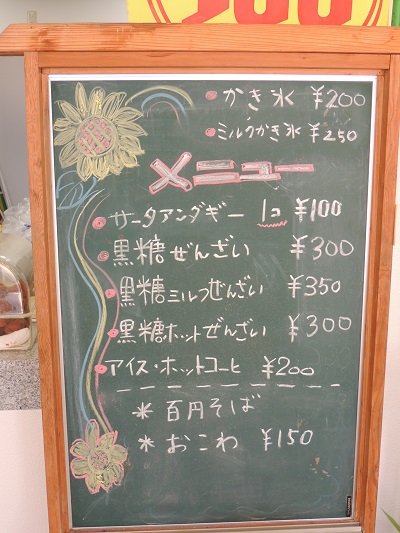 かき氷 ¥200
ミルクかき氷 ¥250
メニュー
サータアンダギー 1コ ¥100
黒糖ぜんざい ¥300
黒糖ミルクぜんざい ¥350
黒糖ホットぜんざい ¥300
アイス・ホットコーヒ ¥200
* 百円そば
* おこわ ¥150